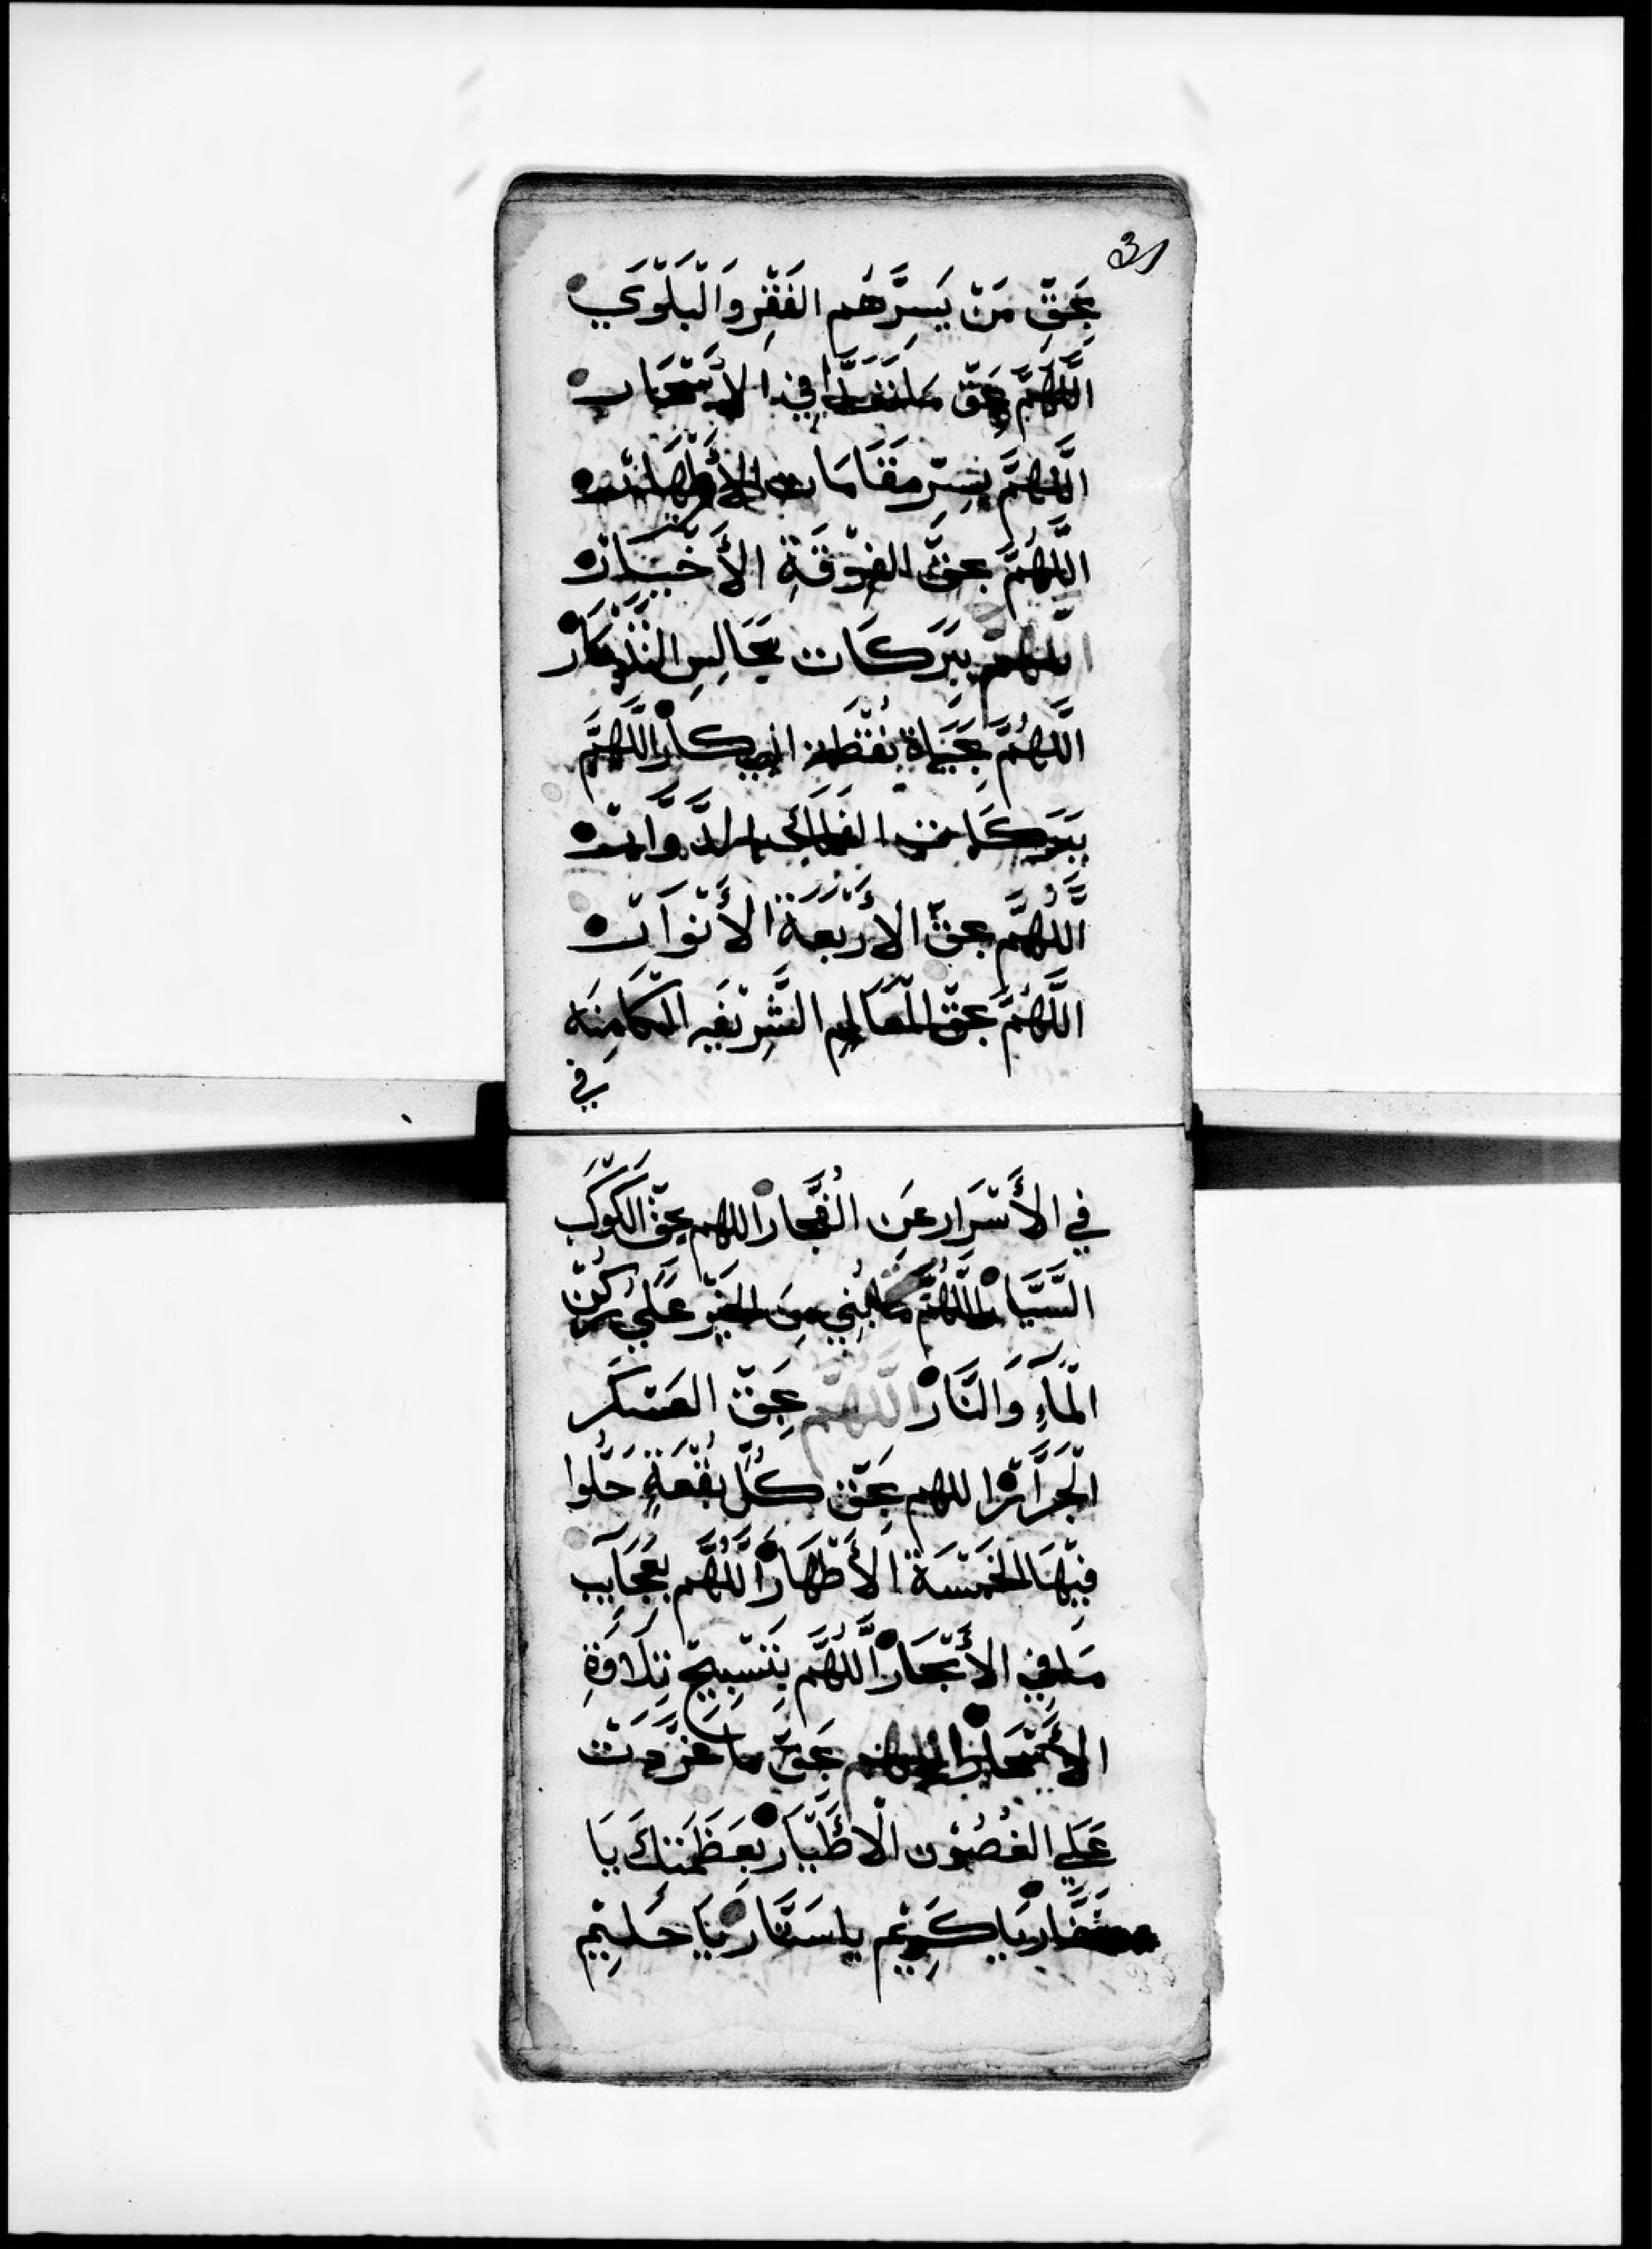 31
بِحَقِّ مَنْ يَسِرَّهُم الفَقْرِ وَالْبَلْوَي
اللَّهُمَّ بحَقّ في الأَسْحَار
اللَّهُمَّ بِسِرّ مَقَامَات الأَطْهَار
اللَّهُمَّ بحقّ الفِرْقَةِ الأَخْيَار
اللهم بِبَرَكَات مَجَالِسِ التَّذْكَار
اللَّهُمَّ اللَّهُمَّ
بِبَرَكَات الفَلَك الدَّوَّار
اللَّهُمَّ بحقّ الأَرْبَعَة الأَنْوَار
اللَّهُمَّ بحَقّ المَعَالِم الشَّرِيْفَه الكَامِنَه
في
في الأَسْرَار عَنِ الفُجَّار اللهم بحَقّ الكَوْكَب
السَّيَّار اللَّهُمَّ مِنَ عَلَي رُكْن
المَاءِ وَالنَّارْ اللَّهُمَّ بحَقّ العَسْكَر
الجَرَّار اللهم بحَقّ كُلّ بُقْعَةٍ حَلُّوا
فِيْهَا الخَمْسَة الأَطْهَار اللَّهُمَّ بعَجَايِب
مَا فِي الأَبْحَار اللَّهُمَّ بِتَسْبِيحْ تِلَاوَةِ
اللهم بحَقّ مَا غَرَّدَتْ
عَلي الغُصُوْن الأَطْيَار بِعَظَمَتِكَ يَا
يَا كَرِيْم يا سَتَّار يَا حَلِيْم